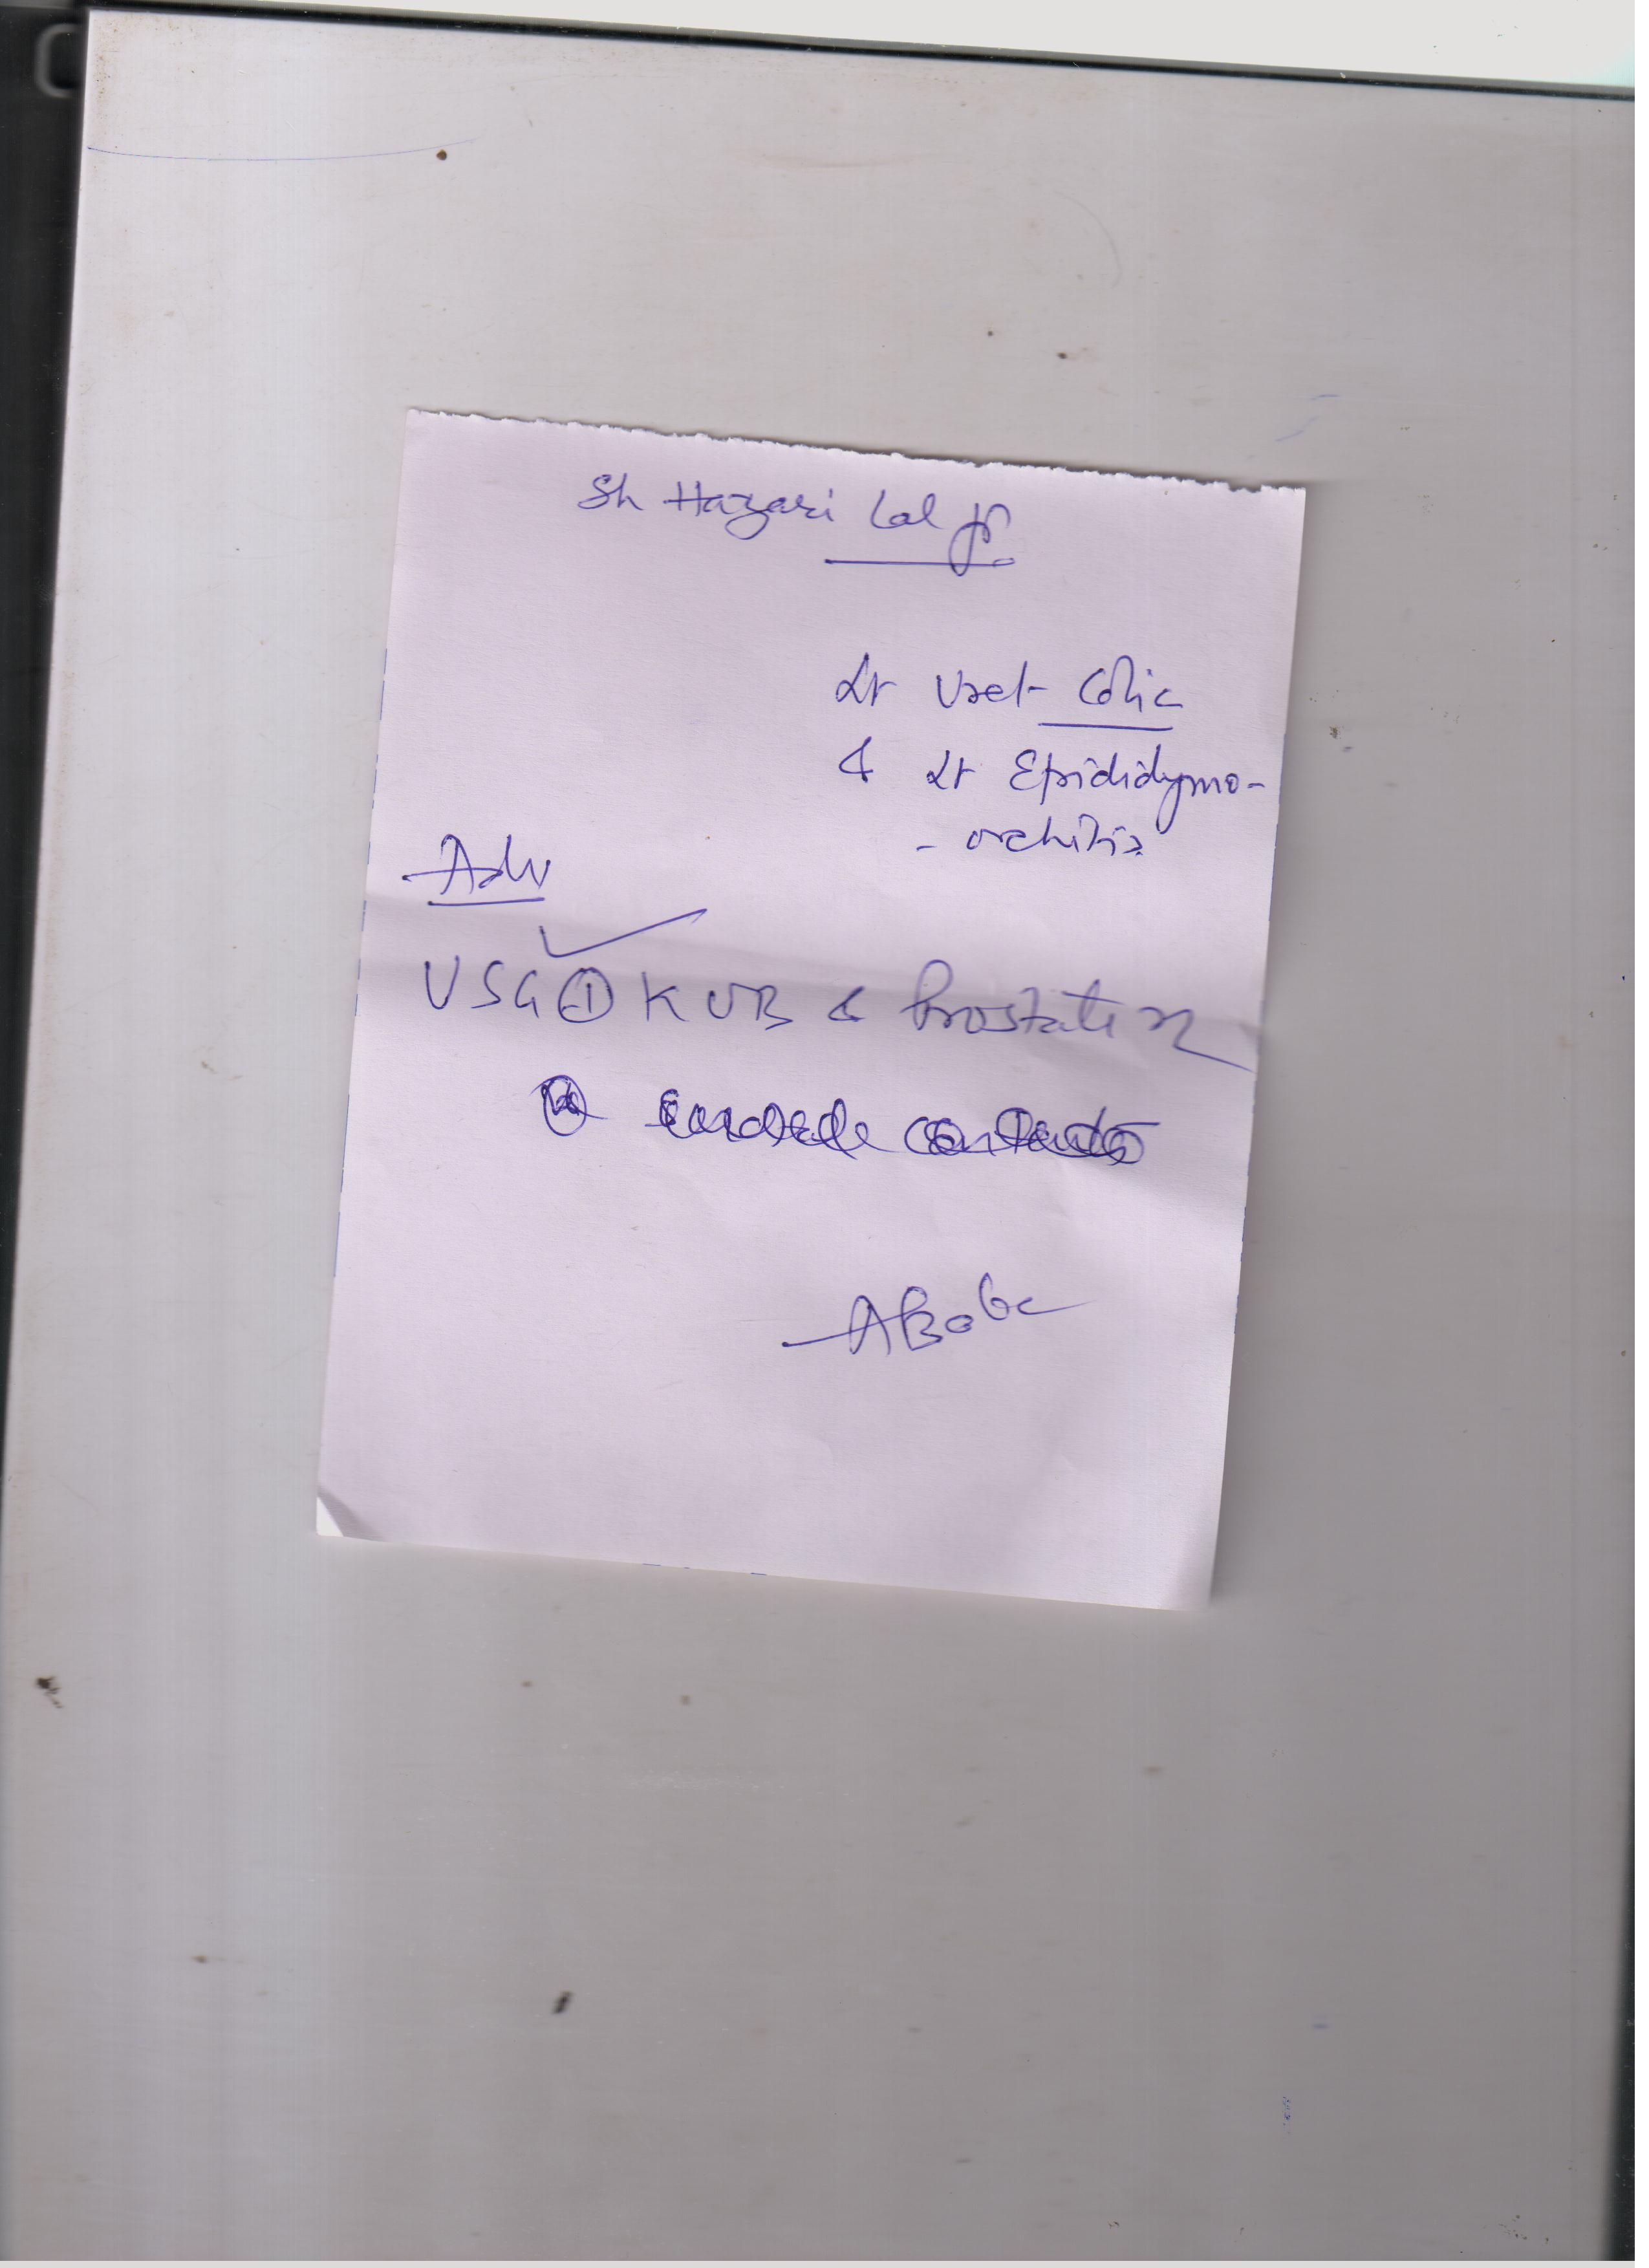 Sh Hazari Lal Ji
Lt Uret- Colic
& Lt Epididymo-
- orchitis
Adv
USG ① KUB & Prostate